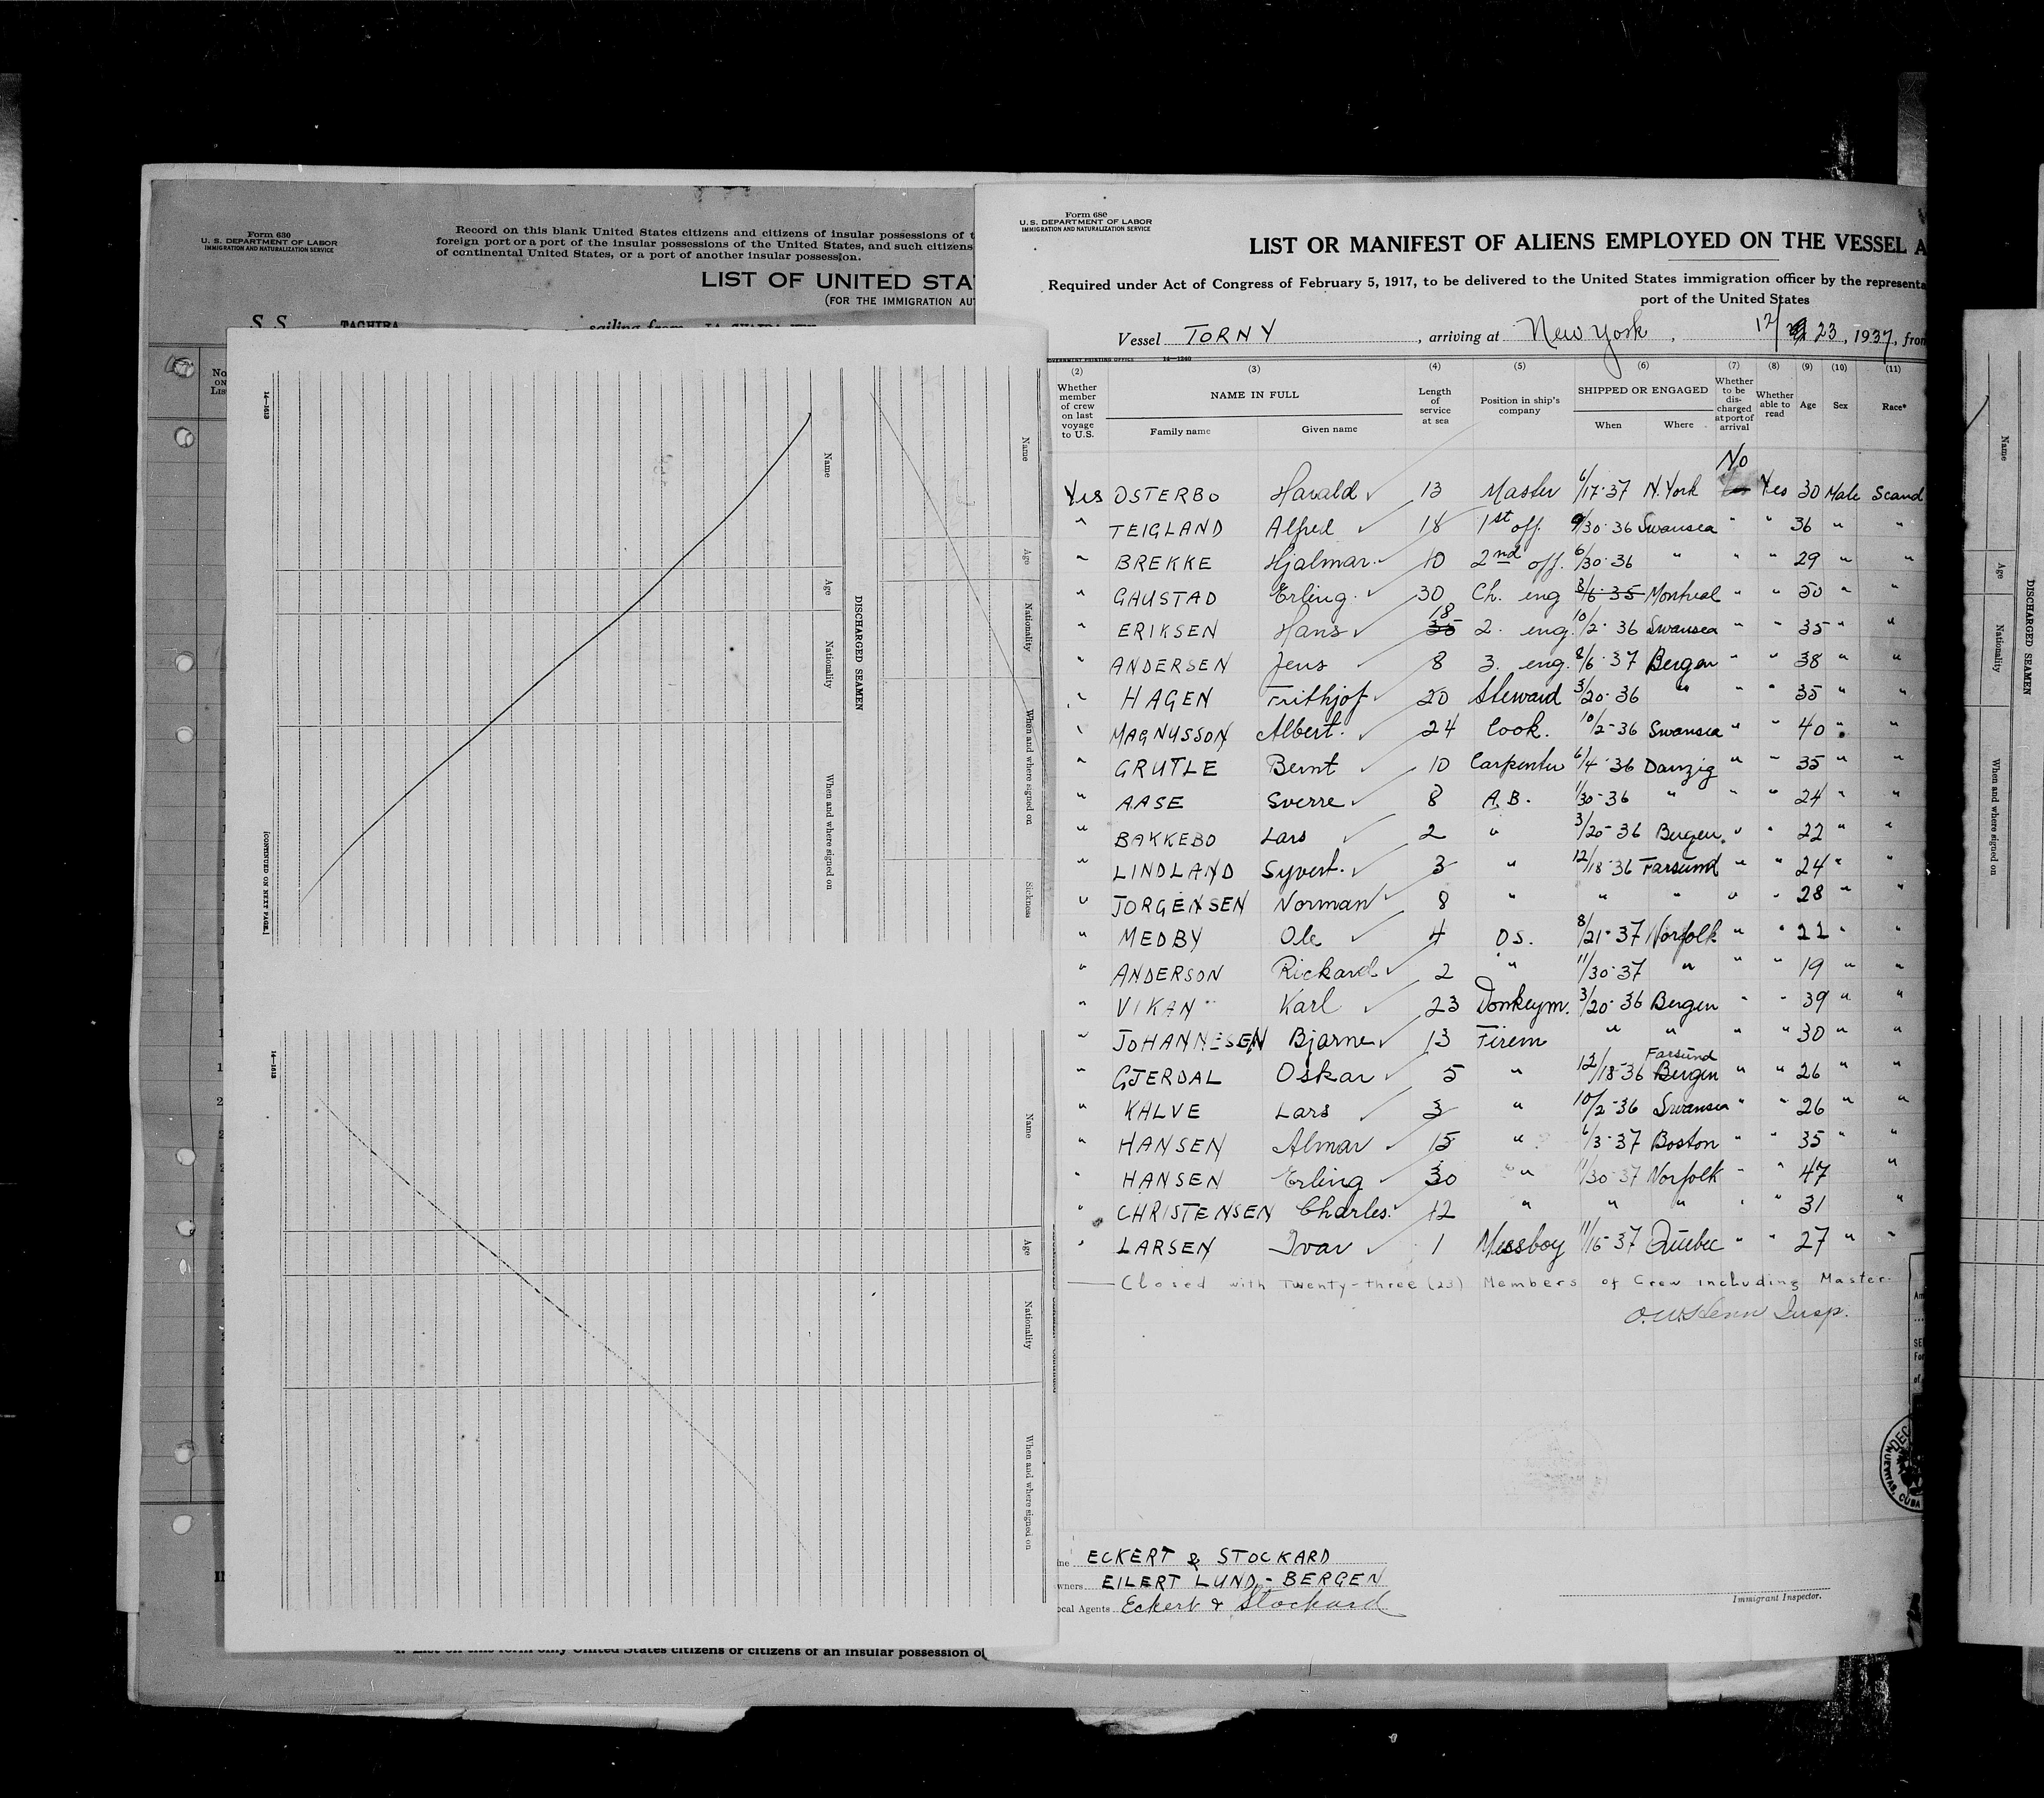 Form 630
U. S. DEPARTMENT OF LABOR
IMMIGRATION AND NATURALIZATION SERVICE
Record on this blank United States citizens and citizens of insular possessions of
foreign port or a port of the insular possessions of the United States, and such citizens
of continental United States, or a port of another insular possession.
LIST OF UNITED STA
(FOR THE IMMIGRATION AU
S. S. TACHIRA sailing from
No
on
Lis
14—1613
Name
Age
Nationality
When and where signed on
DISCHARGED SEAMEN
Name
Age
Nationality
When and where signed on
Sickness
[CONTINUED ON NEXT PAGE.]
14—1613
Name
Age
Nationality
When and where signed on
List on this form only United States citizens or citizens of an insular possession o
Form 680
U. S. DEPARTMENT OF LABOR
IMMIGRATION AND NATURALIZATION SERVICE
LIST OR MANIFEST OF ALIENS EMPLOYED ON THE VESSEL A
Required under Act of Congress of February 5, 1917, to be delivered to the United States immigration officer by the representa
port of the United States
Vessel TORNY, arriving at New York, 12/23, 1937, from
GOVERNMENT PRINTING OFFICE 14—1240
(2) (3) (4) (5) (6) (7) (8) (9) (10) (11)
Whether member of crew on last voyage to U.S. NAME IN FULL Family name Given name Length of service at sea Position in ship's company SHIPPED OR ENGAGED When Where Whether to be discharged at port of arrival Whether able to read Age Sex Race*
No
Yes OSTERBO Harald 13 Master 6/17-37 N. York Yes 30 Male Scand
" TEIGLAND Alfred 18 1st off. 9/30-36 Swansea " " 36 " "
" BREKKE Hjalmar 10 2nd off. 6/30-36 " " " 29 " "
" GAUSTAD Erling 30 Ch. eng 8/6-35 Montreal " " 50 " "
" ERIKSEN Hans 18 2. eng. 10/2-36 Swansea " " 35 " "
" ANDERSEN Jens 8 3. eng. 8/6-37 Bergen " " 38 " "
" HAGEN Frithjof 20 Steward 3/20-36 " " " 35 " "
" MAGNUSSON Albert 24 Cook. 10/2-36 Swansea " " 40 " "
" GRUTLE Bernt 10 Carpenter 6/4-36 Danzig " " 35 " "
" AASE Sverre 8 A.B. 1/30-36 " " " 24 " "
" BAKKEBO Lars 2 " 3/20-36 Bergen " " 22 "
" LINDLAND Syvert. 3 " 12/18-36 Farsund " " 24 " "
" JORGENSEN Norman 8 " " " " " 28 " "
" MEDBY Ole 4 O.S. 8/21-37 Norfolk " " 21 " "
" ANDERSON Rickard 2 " 11/30-37 " " " 19 " "
" VIKAN Karl 23 Donkeym. 3/20-36 Bergen " " 39 " "
" JOHANNESEN Bjarne 13 Firem " " " " 30 " "
Farsund
" GJERDAL Oskar 5 " 12/18-36 Bergen " " 26 " "
" KALVE Lars 3 " 10/2-36 Swansea " " 26 " "
" HANSEN Almar 15 " 6/3-37 Boston " " 35 " "
" HANSEN Erling 30 " 11/30-37 Norfolk " " 47 "
" CHRISTENSEN Charles 12 " " " " " 31 "
" LARSEN Ivar 1 Messboy 11/15-37 Quebec " " 27 " "
Closed with Twenty-three (23) Members of Crew including Master.
Insp.
DEC
CUBA
ECKERT & STOCKARD
wners EILERT LUND,- BERGEN
ocal Agents Eckert & Stockard
Immigrant Inspector.
Name
Age
Nationality
When and where signed on
DISCHARGED SEAMEN